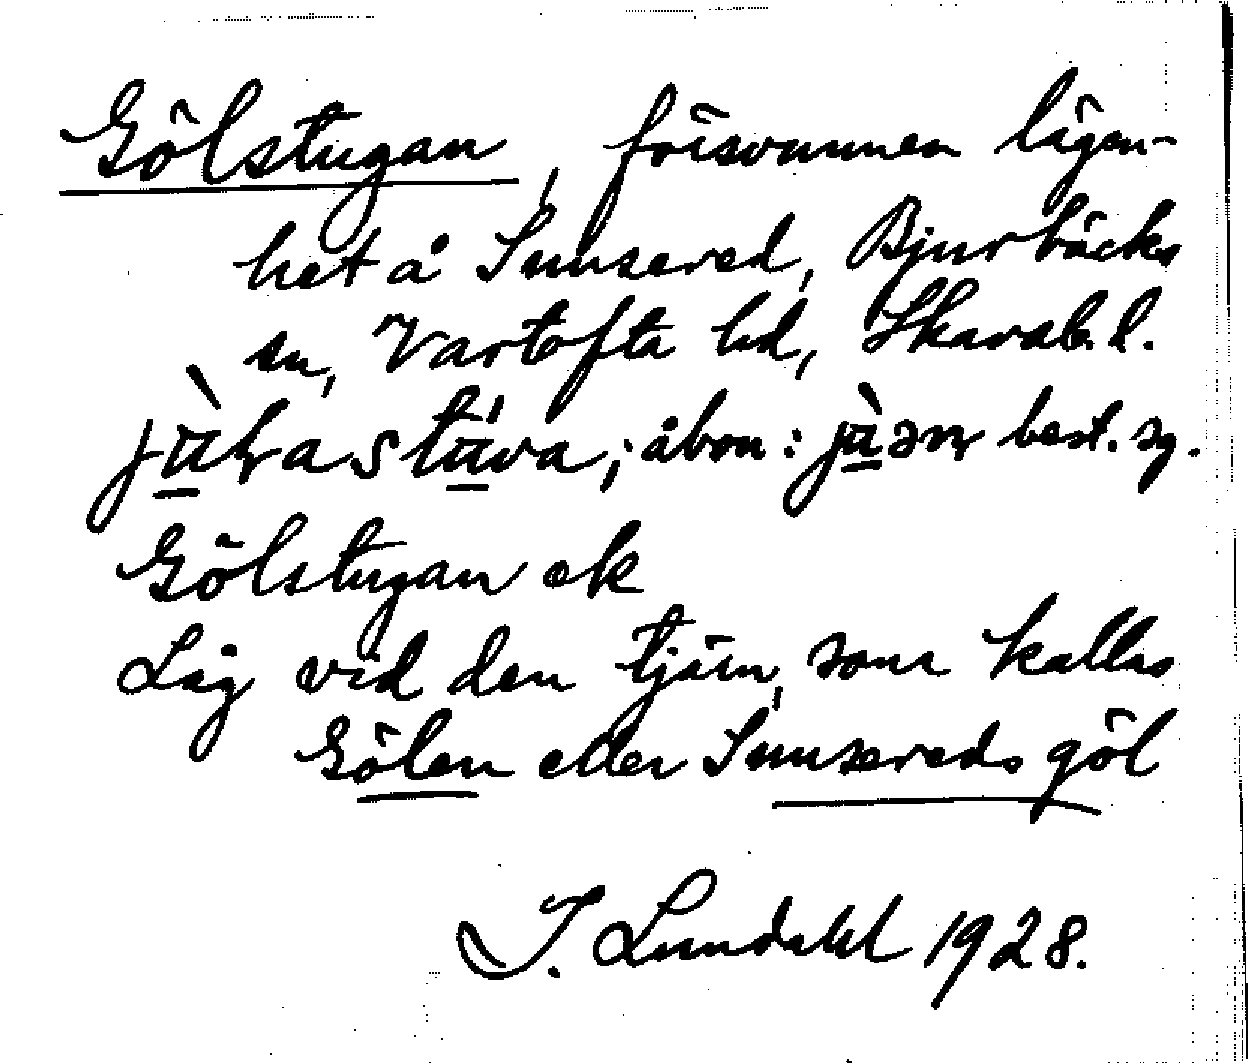 Gölstugan, försvunnen lägen-
het å Sunsered, Bjurbäcks
sn, Vartofta hd, Skarab. l.
åbon: best. sg.
Gölstugan ek
Låg vid den tjärn, som kallas
Gölen eller Sunsereds göl
I. Lundahl 1928.